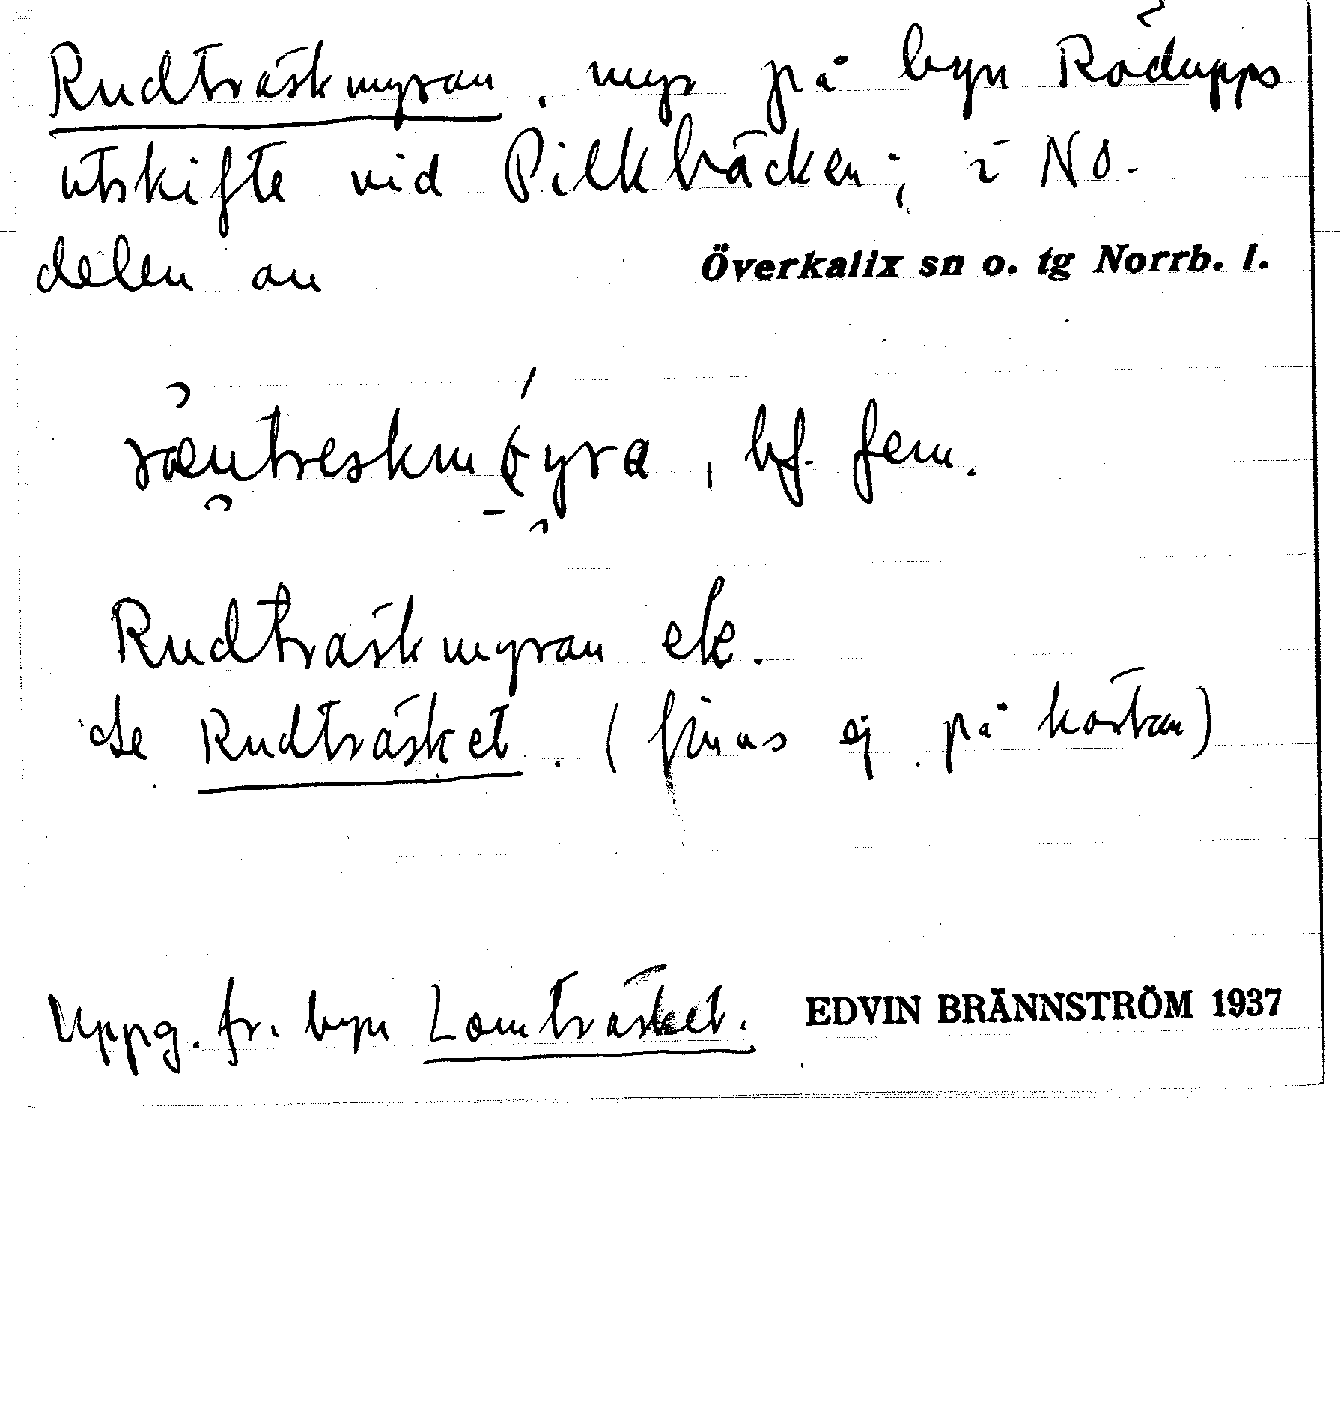 Rudträskmyran, myr på byn Rödupps
utskifte vid Pilkbäcken; i NO.
delen av Överkalix sn o. tg Norrb. l.
bf. fem.
Rudträskmyran ek.
Se Rudträsket. (finns ej på kartan)
Uppg. fr. byn Lomträsket. EDVIN BRÄNNSTRÖM 1937